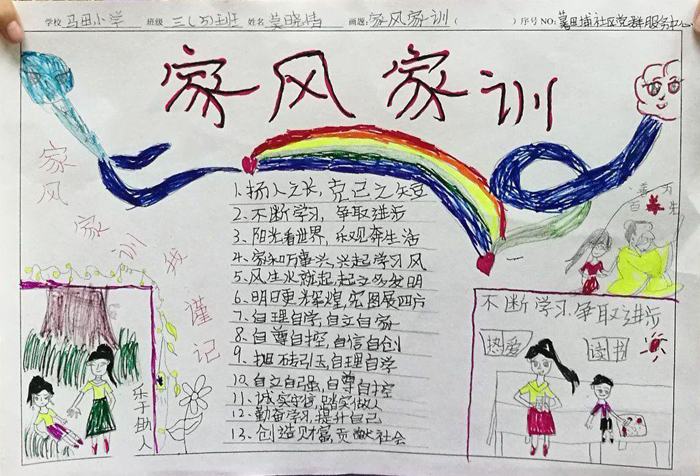 学校 马田小学 班级 三(5)班 姓名 莫晓情 画题: 家风家训 ( ) 序号NO: 莨田埔社区党群服务中心
家风家训
家风家训我谨记
1.扬人之长,克己之短
2.不断学习,争取进步
3.阳光看世界,乐观奔生活
4.家和万事兴,兴起学习风
5.风生水就起,起立多发明
6.明日更光辉煌,宏图展四方
7.自理自学,自立自家
8.自尊自控,自信自创
9.抛砖引玉,自理自学
10.自立自强,自尊自控
11.诚实守信,踏实做人
12.勤奋学习,提升自己
13.创造财富,贡献社会
善为
百 先
不断学习,争取进步
热爱
读书
乐于助人